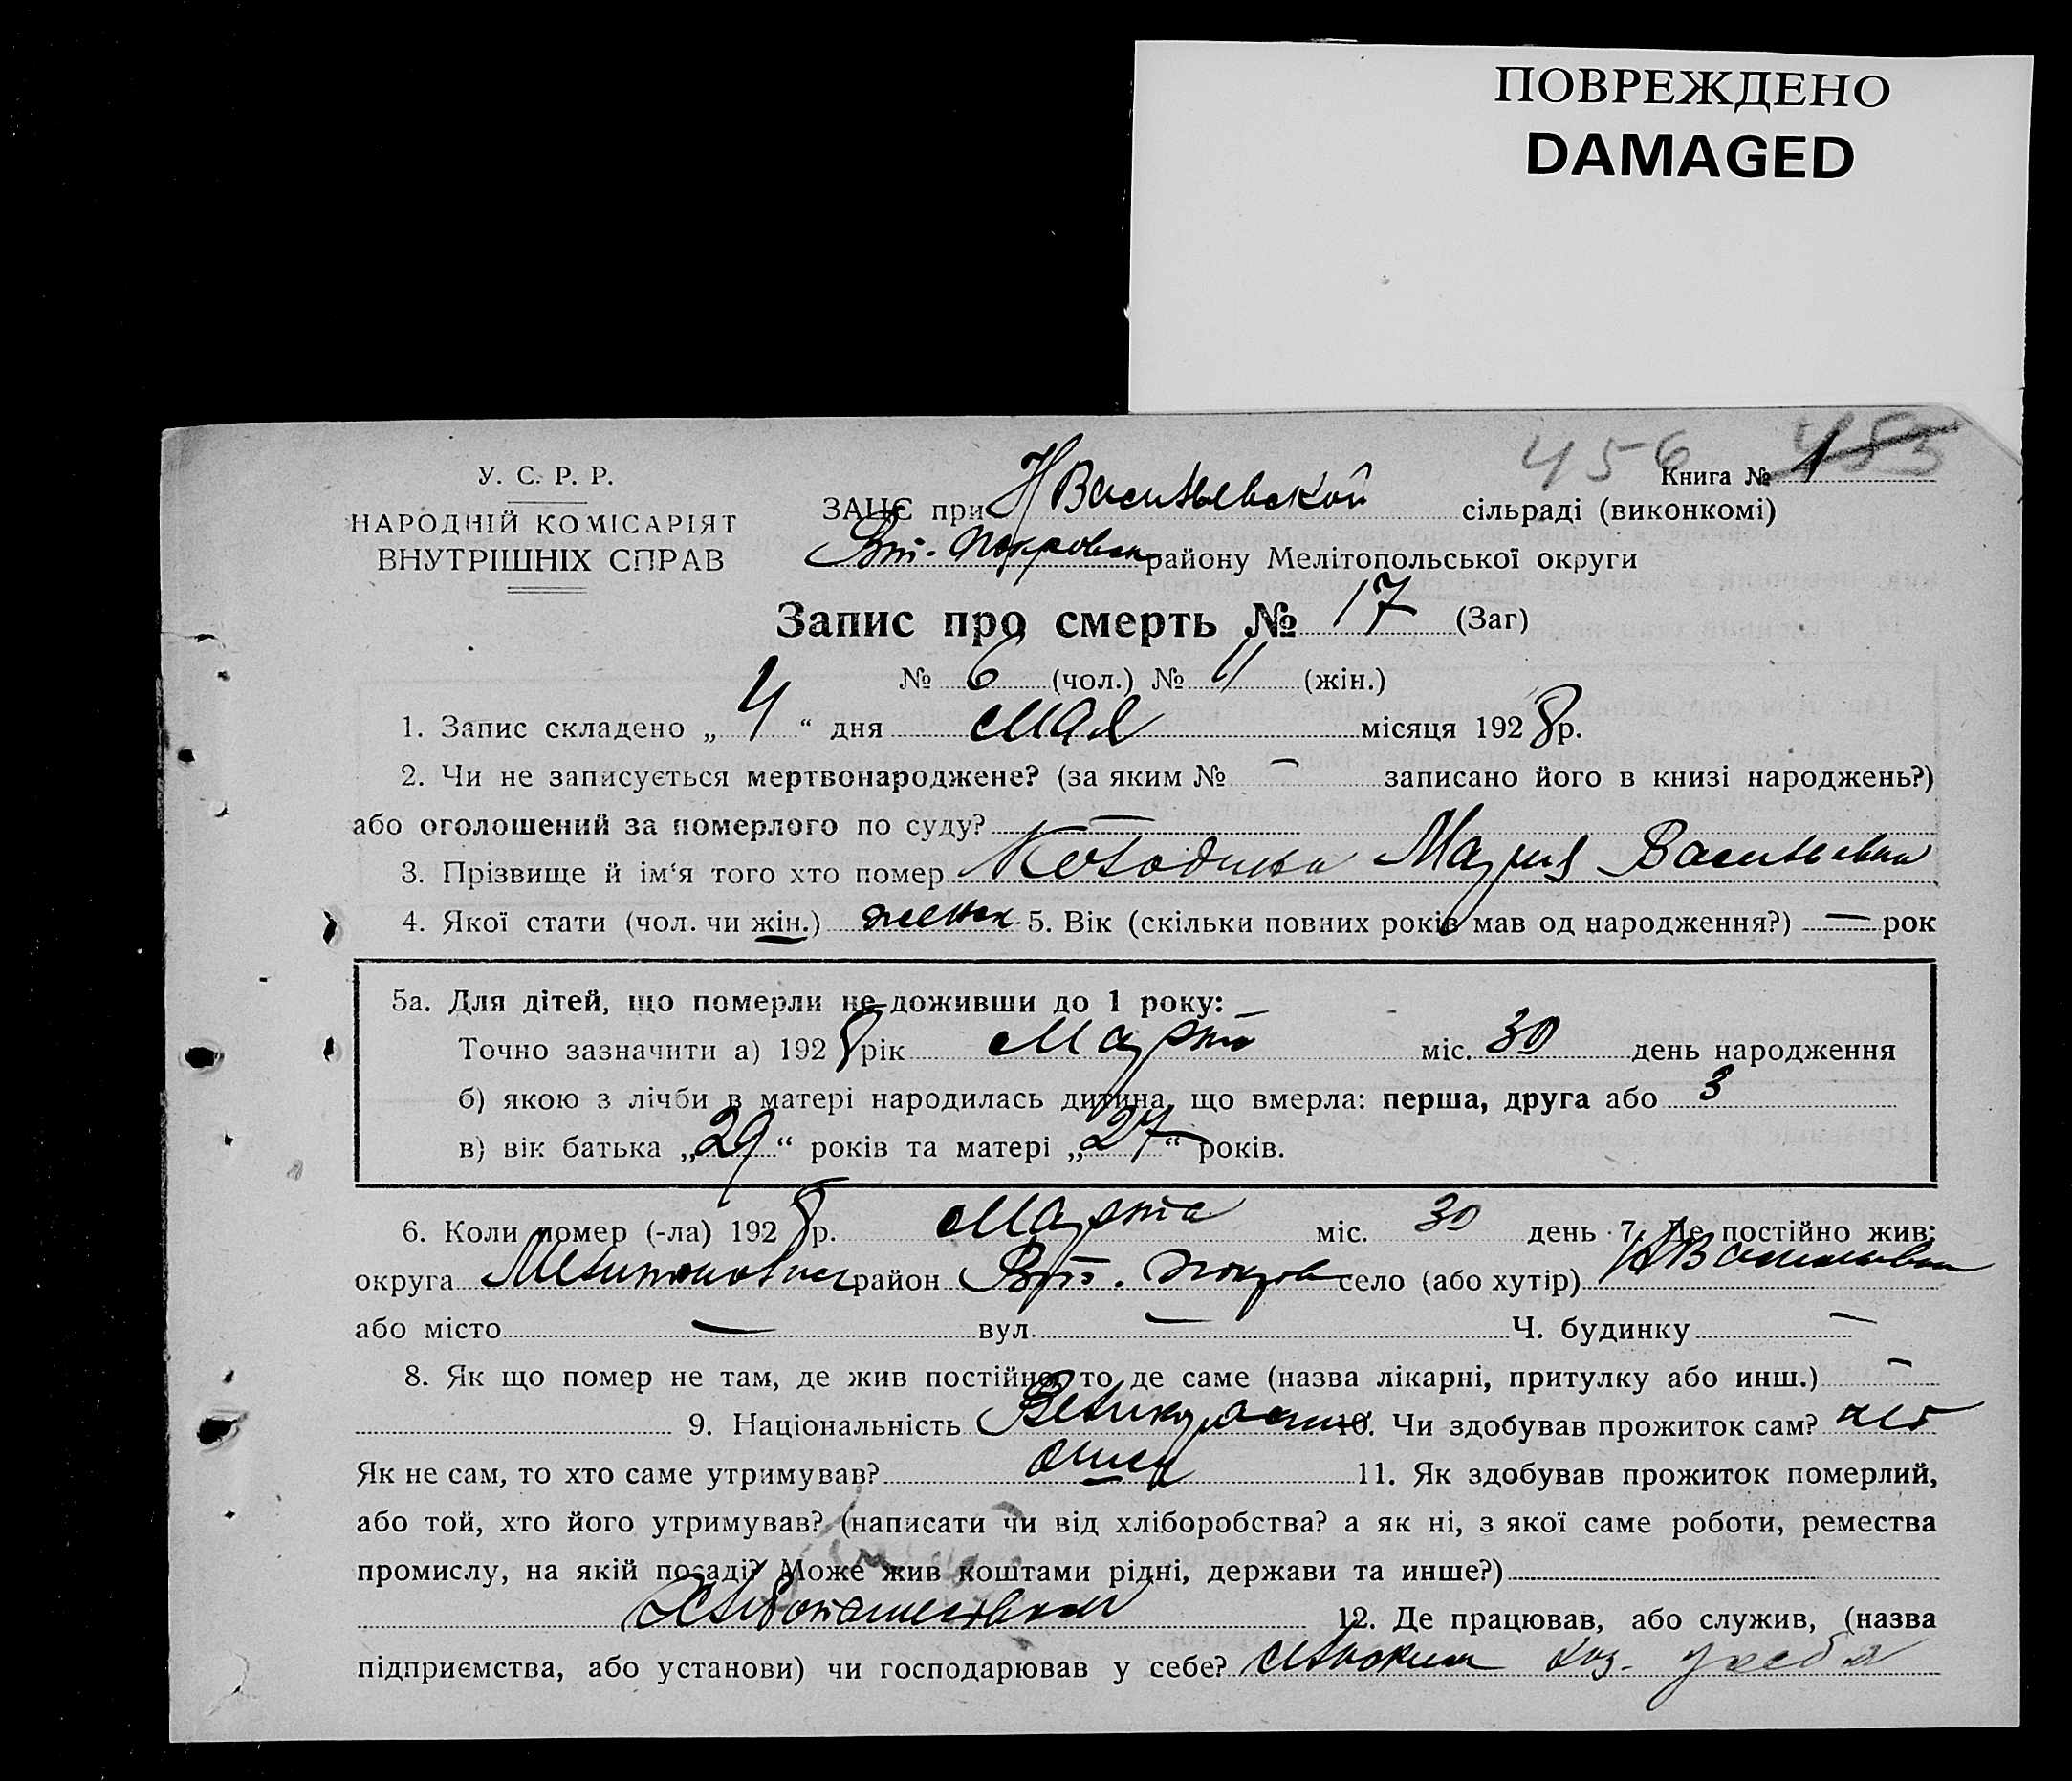 ПОВРЕЖДЕНО
DAMAGED
456 453
У. С. Р. Р.
Книга № 1
НАРОДНІЙ КОМІСАРІЯТ
ВНУТРІШНІХ СПРАВ
ЗАЦС при Н Васильевской сільраді (виконкомі)
Вт.-Покровск району Мелітопольської округи
Запис про смерть № 17 (Заг)
№ 6 (чол.) № 11 (жін.)
1. Запис складено „ 4 “ дня мая місяця 1928 р.
2. Чи не записується мертвонароджене? (за яким № — записано його в книзі народжень?)
або оголошений за померлого по суду? —
3. Прізвище й ім‘я того хто помер Мария Васильевна
4. Якої стати (чол. чи жін.) женск. 5. Вік (скільки повних років мав од народження?) — рок
5а. Для дітей, що померли не доживши до 1 року:
Точно зазначити а) 1928 рік Марта міс. 30 день народження
б) якою з лічби в матері народилась дитина, що вмерла: перша, друга або 3
в) вік батька „29“ років та матері „27“ років.
6. Коли помер (-ла) 1928 р. Марта міс. 30 день 7. Де постійно жив:
округа район Вт.-Покров село (або хутір)
або місто — вул. — Ч. будинку —
8. Як що помер не там, де жив постійно, то де саме (назва лікарні, притулку або инш.) —
9. Національність 10. Чи здобував прожиток сам? нет
Як не сам, то хто саме утримував? отец 11. Як здобував прожиток померлий,
або той, хто його утримував? (написати чи від хліборобства? а як ні, з якої саме роботи, ремества
промислу, на якій посаді? Може жив коштами рідні, держави та инше?)
12. Де працював, або служив, (назва
підприємства, або установи) чи господарював у себе?